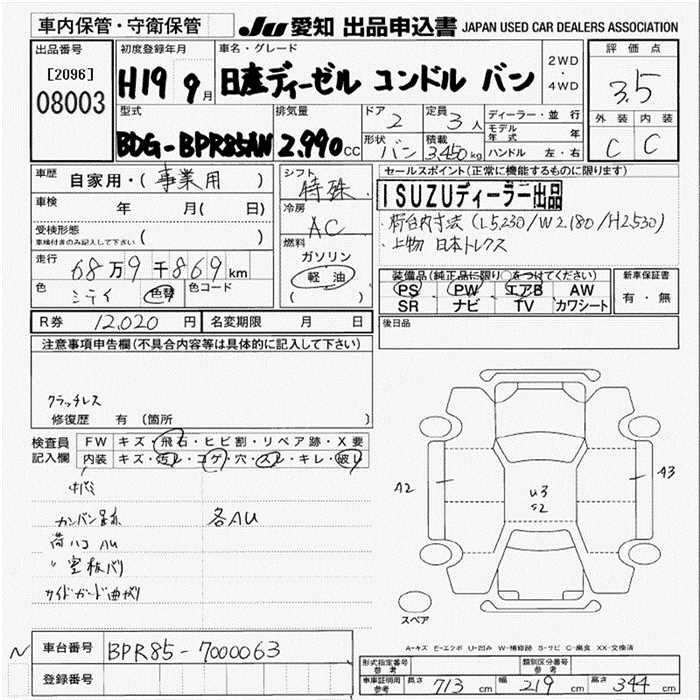 車内保管・守衛保管
JU 愛知 出品申込書 JAPAN USED CAR DEALERS ASSOCIATION
出品番号
[2096]
08003
初度登録年月
H19 9月
車名・グレード
日産ディーゼル コンドル バン
2WD
・
4WD
評価点
3.5
外装 内装
C C
型式
BDG-BPR85AN
排気量
2,990cc
ドア
2
定員
3人
形状
バン
積載
3,450kg
ディーラー・並行
モデル年式 年
ハンドル 左・右
車歴 自家用・(事業用)
車検 年 月( 日)
受検形態
車検付きのみ記入して下さい ( )
走行 68万9千869km
色 シティ 色替 色コード
シフト
特殊
冷房
AC
燃料
ガソリン
軽油
( )
セールスポイント(正常に機能するものに限ります)
ISUZUディーラー出品
・荷台内寸法(L5,230/W2,180/H2,530)
・上物 日本トレクス
装備品(純正品に限り○をつけてください)
PS PW エアB AW
SR ナビ TV カワシート
新車保証書
有・無
後日品
R券 12,020円 名変期限 月 日
注意事項申告欄(不具合内容等は具体的に記入して下さい)
クラッチレス
修復歴 有 (箇所 )
検査員
記入欄
FW キズ・飛石・ヒビ割・リペア跡・X要
内装 キズ・汚レ・コゲ・穴・スレ・キレ・破レ
カンバン跡 各AU
荷ハコ AU
サイドガード曲がり
A2
A3
U3
S2
スペア
A-キズ E-エクボ U-凹み W-補修跡 S-サビ C-腐食 XX-交換済
N
車台番号 BPR85-7000063
登録番号
形式指定番号
参考
類別区分番号
参考
車車証明用
参考
長さ 713cm 幅 219cm 高さ 344cm